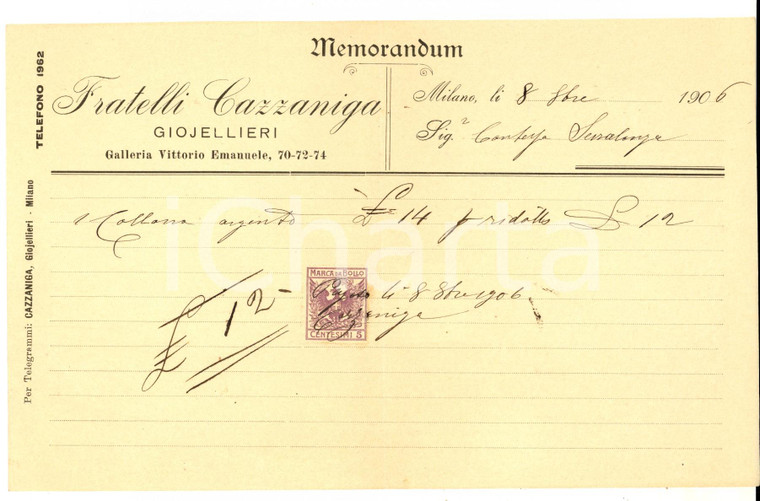 Memorandum
TELEFONO 1962
Fratelli Cazzaniga
GIOJELLIERI
Galleria Vittorio Emanuele, 70-72-74
Milano, li 8 9bre 1906
Sig.ra Contessa
Per Telegrammi: CAZZANIGA, Giojellieri - Milano
1 Collana argento £ 14 p ridotto £ 12
iCharta
MARCA DA BOLLO
CENTESIMI 5
li 8 9bre 906
Cazzaniga
£ 12